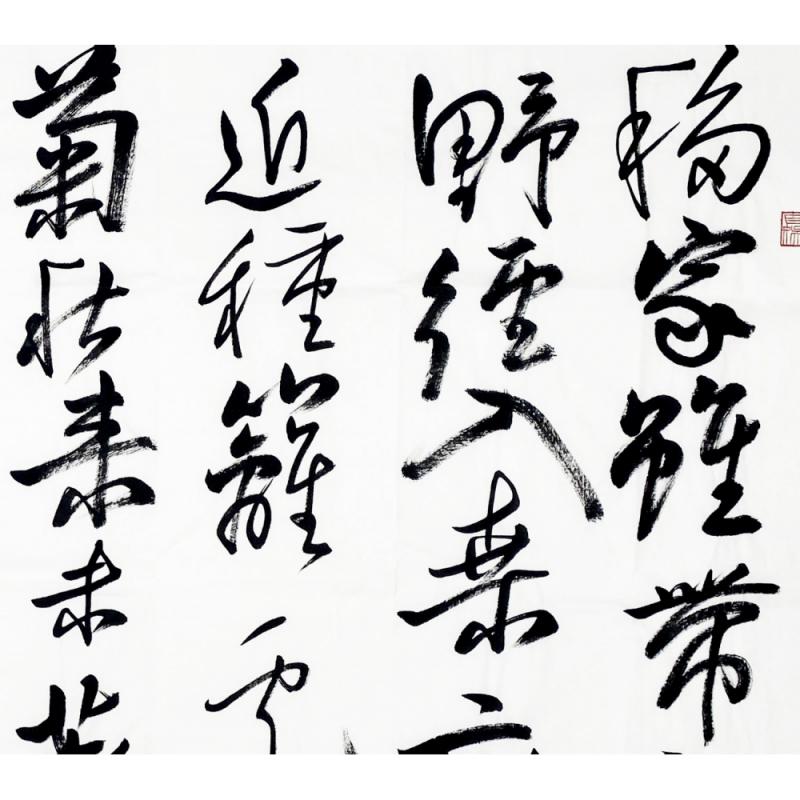 移家雖帶
野徑入桑
近種籬邊
菊秋來未